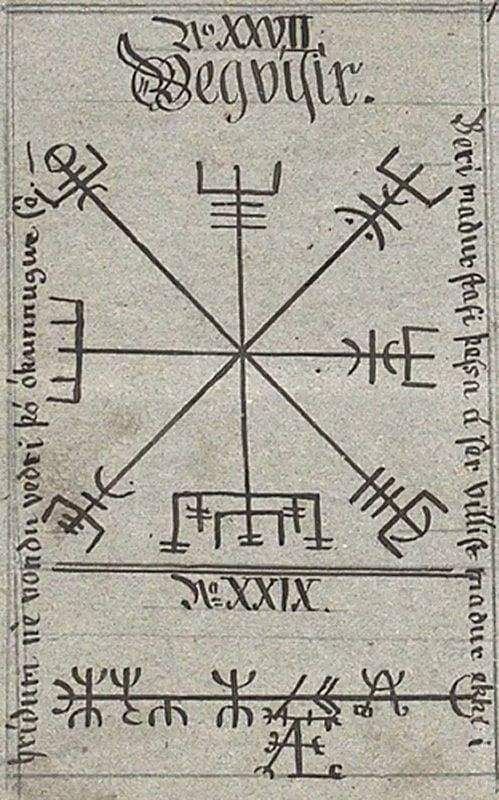 No XXVII.
Vegvísir.
Beri madur stafi þessa á sér villist madur ekki í
hrídum né vondu vedri þó ókunnugur sé. –
No XXIX.